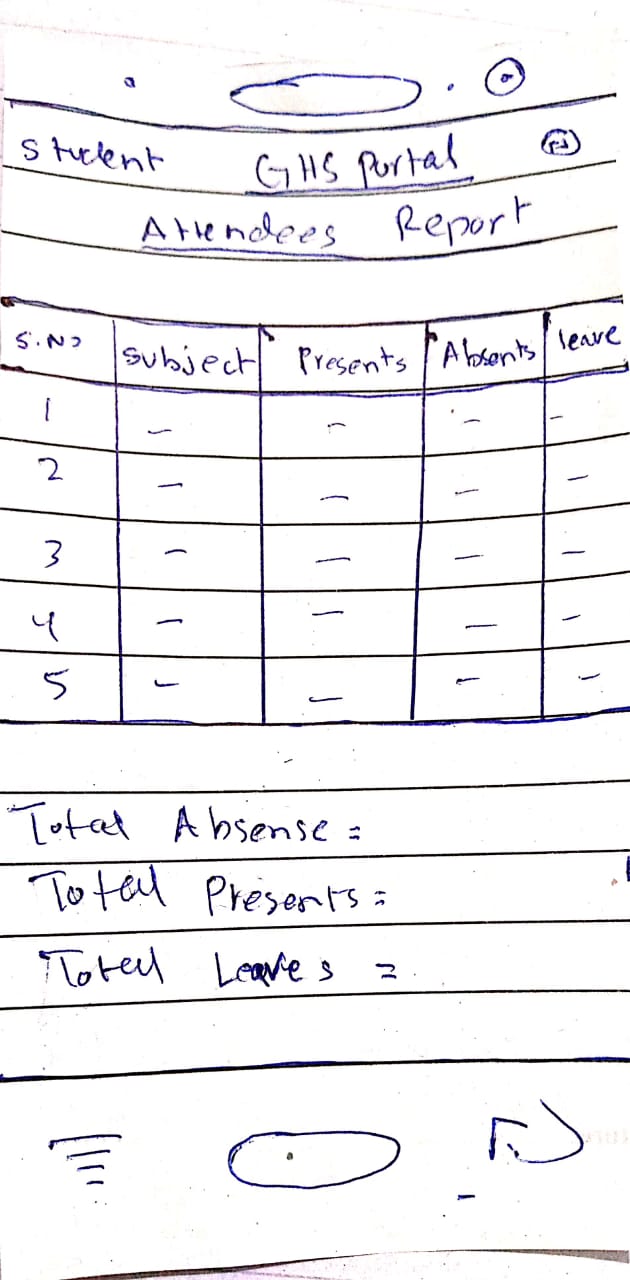 Student GHS Portal
Attendees Report
S.NO Subject Presents Absents leave
1 – – – –
2 – – – –
3 – – – –
4 – – – –
5 – – – –
Total Absense =
Total Presents =
Total Leaves =